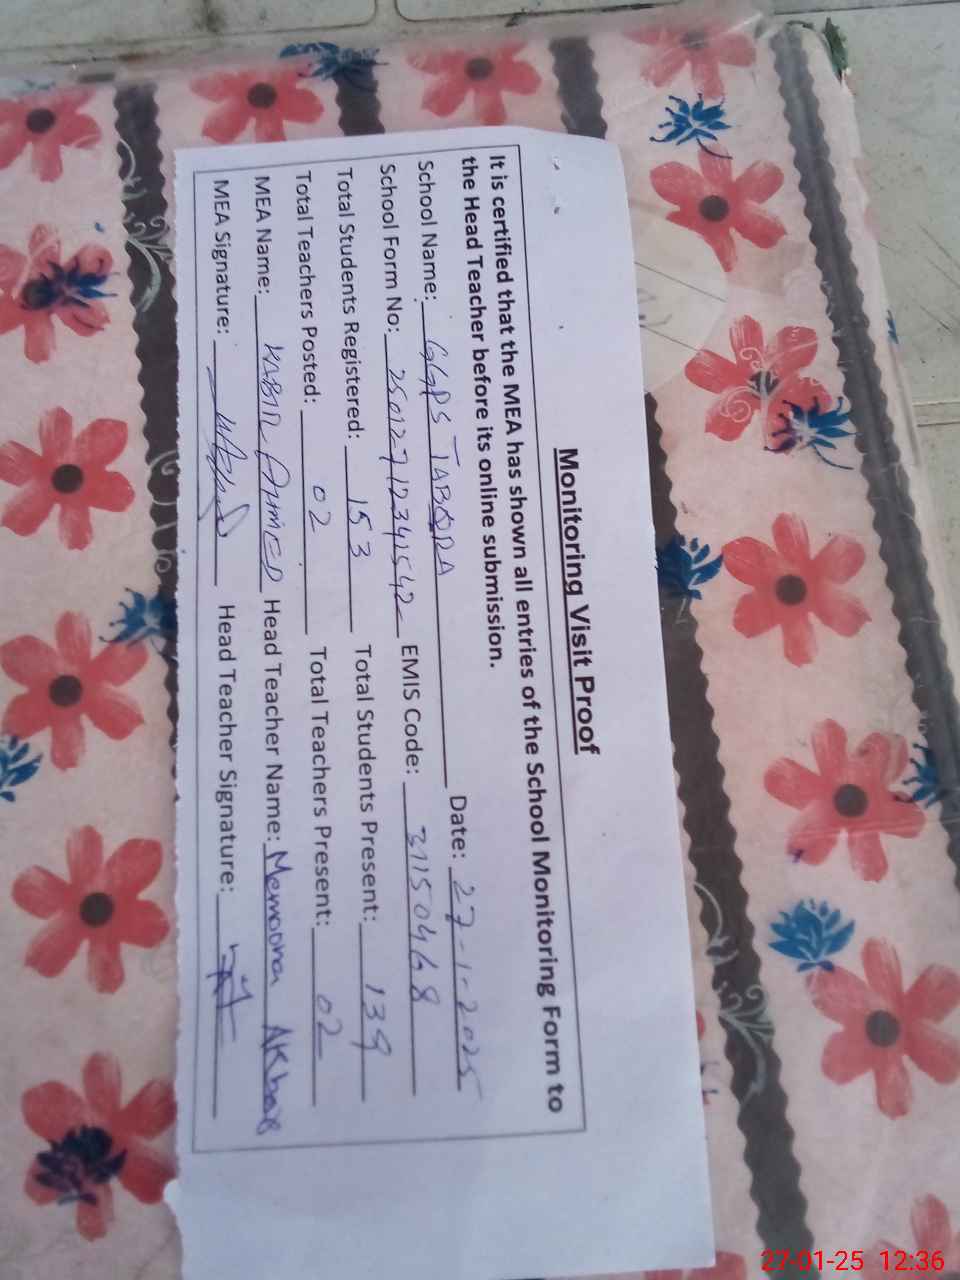 Monitoring Visit Proof
It is certified that the MEA has shown all entries of the School Monitoring Form to
the Head Teacher before its online submission.
School Name: GGPS TABORA Date: 27-1-2025
School Form No: 25012712341542 EMIS Code: 31150468
Total Students Registered: 153 Total Students Present: 139
Total Teachers Posted: 02 Total Teachers Present: 02
MEA Name: KABIR AHMED Head Teacher Name: Memoona Akbar
MEA Signature: Head Teacher Signature:
27-01-25 12:36